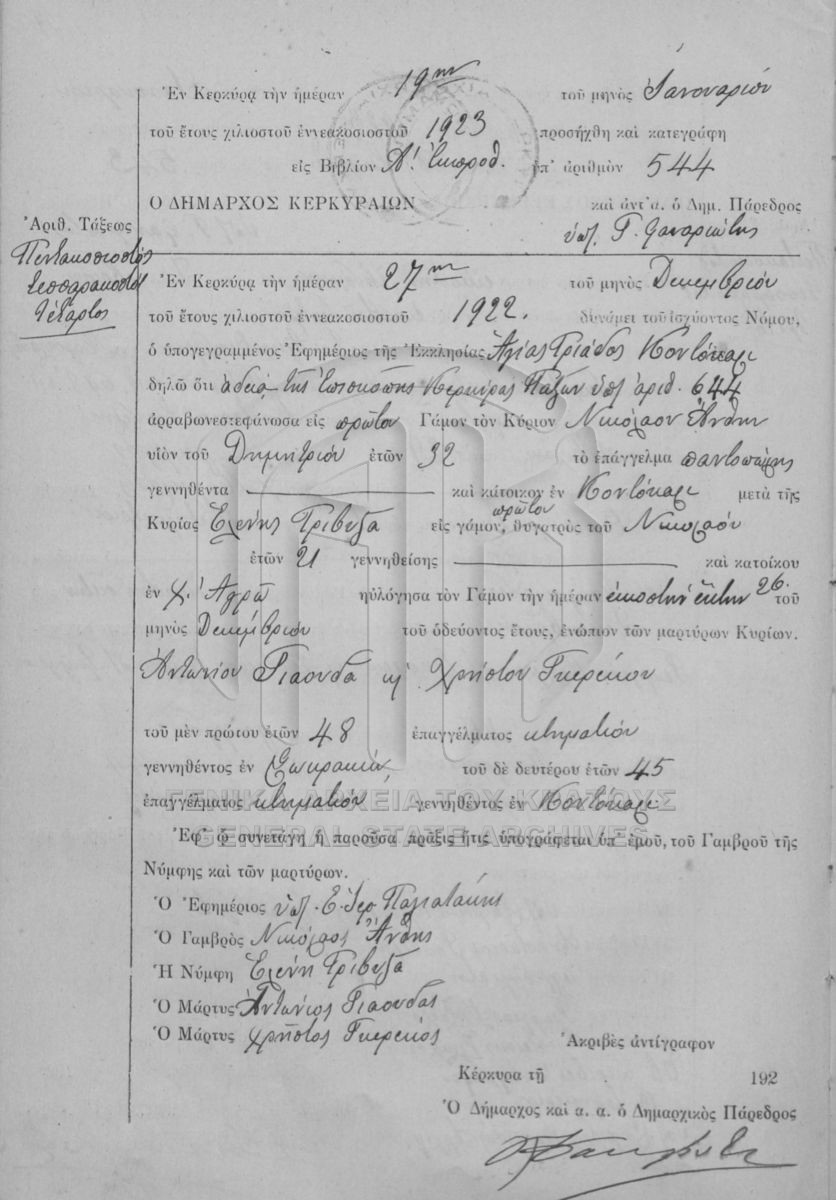 Ἐν Κερκύρᾳ τὴν ἡμέραν 19ην τοῦ μηνὸς Ἰανουαρίου
τοῦ ἔτους χιλιοστοῦ ἐννεακοσιοστοῦ 1923 προσήχθη καὶ κατεγράφη
εἰς Βιβλίον Α! Ἐκπροθ. ὑπ' ἀριθμὸν 544
Ο ΔΗΜΑΡΧΟΣ ΚΕΡΚΥΡΑΙΩΝ καὶ ἀντ' α. ὁ Δημ. Πάρεδρος
Ἀριθ. Τάξεως
Πεντακοσιοστὸς
τεσσαρακοστὸς
τέταρτος
ὑπ. Γ. Φαναριώτης
Ἐν Κερκύρᾳ τὴν ἡμέραν 27ην τοῦ μηνὸς Δεκεμβρίου
τοῦ ἔτους χιλιοστοῦ ἐννεακοσιοστοῦ 1922. δυνάμει τοῦ ἰσχύοντος Νόμου,
ὁ ὑπογεγραμμένος Ἐφημέριος τῆς Ἐκκλησίας Ἁγίας Τριάδος Κοντόκαλι
δηλῶ ὅτι ἀδείᾳ τῆς Ἐπισκοπῆς Κερκύρας Παξῶν ὑπ' ἀριθ. 644
ἀρραβωνεστεφάνωσα εἰς πρῶτον Γάμον τὸν Κύριον Νικόλαον Ἄνθην
υἱὸν τοῦ Δημητρίου ἐτῶν 32 τὸ ἐπάγγελμα παντοπώλης
γεννηθέντα καὶ κάτοικον ἐν Κοντόκαλι μετὰ τῆς
Κυρίας Ἑλένης Τριβυζᾶ εἰς γάμον, πρῶτον θυγατρὸς τοῦ Νικολάου
ἐτῶν 21 γεννηθείσης καὶ κατοίκου
ἐν χ. Ἀγρῷ ηὐλόγησα τὸν Γάμον τὴν ἡμέραν εἰκοστὴν ἕκτην 26. τοῦ
μηνὸς Δεκεμβρίου τοῦ ὁδεύοντος ἔτους, ἐνώπιον τῶν μαρτύρων Κυρίων.
Ἀντωνίου Γιαουδᾶ κ) Χρήστου Γκερέκου
τοῦ μὲν πρώτου ἐτῶν 48 ἐπαγγέλματος κτηματίου
γεννηθέντος ἐν Σωκρακίῳ, τοῦ δὲ δευτέρου ἐτῶν 45
ἐπαγγέλματος κτηματίου γεννηθέντος ἐν Κοντόκαλι
ΓΕΝΙΚΑ ΑΡΧΕΙΑ ΤΟΥ ΚΡΑΤΟΥΣ
GENERAL STATE ARCHIVES
Ἐφ' ᾧ συνετάγη ἡ παροῦσα πρᾶξις ἥτις ὑπογράφεται ὑπ' ἐμοῦ, τοῦ Γαμβροῦ τῆς
Νύμφης καὶ τῶν μαρτύρων.
Ὁ Ἐφημέριος ὑπ. Ε. Ἱερ.
Ὁ Γαμβρὸς Νικόλαος Ἄνθης
Ἡ Νύμφη Ἑλένη Τριβυζᾶ
Ὁ Μάρτυς Ἀντώνιος Γιαουδᾶς
Ὁ Μάρτυς Χρῆστος Γκερέκος
Ἀκριβὲς ἀντίγραφον
Κέρκυρα τῇ 192
Ὁ Δήμαρχος καὶ α. α. ὁ Δημαρχικὸς Πάρεδρος